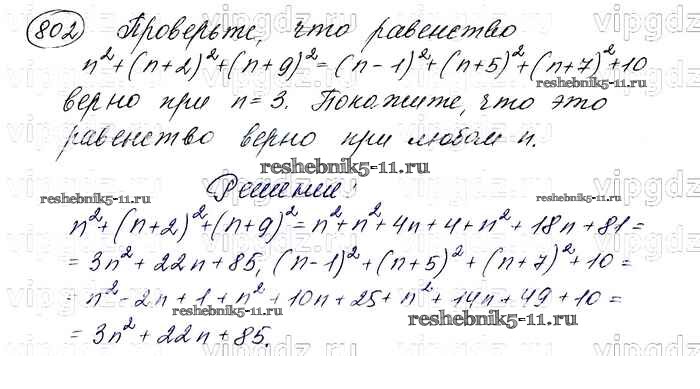 802 Проверьте, что равенство
n² + (n+2)² + (n+9)² = (n-1)² + (n+5)² + (n+7)² + 10
верно при n = 3. Покажите, что это
равенство верно при любом n.
reshebnik5-11.ru
reshebnik5-11.ru
Решение:
reshebnik5-11.ru
reshebnik5-11.ru
n² + (n+2)² + (n+9)² = n² + n² + 4n + 4 + n² + 18n + 81 =
= 3n² + 22n + 85, (n-1)² + (n+5)² + (n+7)² + 10 =
= n² - 2n + 1 + n² + 10n + 25 + n² + 14n + 49 + 10 =
reshebnik5-11.ru
reshebnik5-11.ru
= 3n² + 22n + 85.